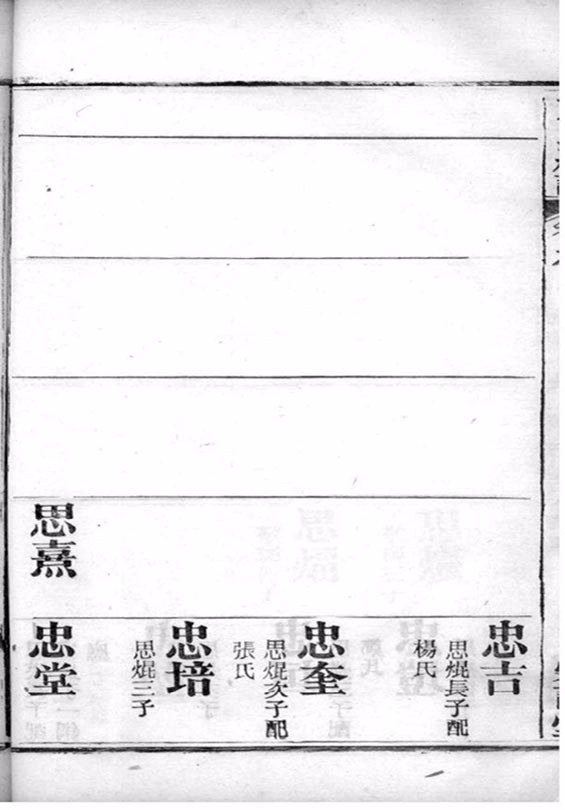 忠吉
思焜長子配
楊氏
忠奎
思焜次子配
張氏
忠培
思焜三子
思熹
忠堂